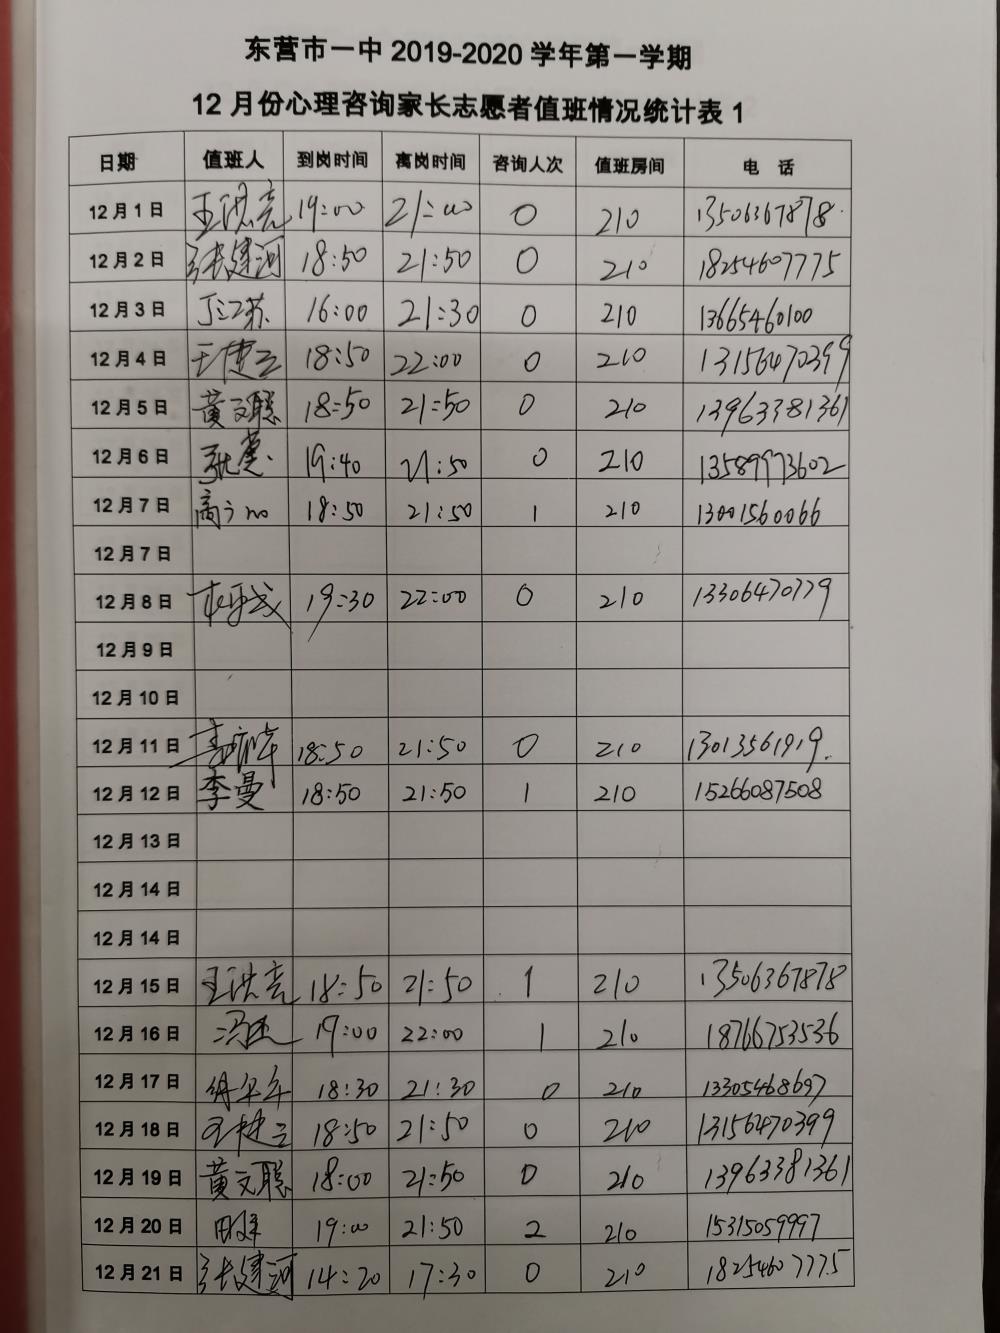 东营市一中 2019-2020 学年第一学期
12 月份心理咨询家长志愿者值班情况统计表 1
日期 值班人 到岗时间 离岗时间 咨询人次 值班房间 电 话
12 月 1 日 王洪亮 19:00 21:00 0 210 13506367878
12 月 2 日 张建河 18:50 21:50 0 210 18254607775
12 月 3 日 丁江苏 16:00 21:30 0 210 13665460100
12 月 4 日 王捷三 18:50 22:00 0 210 13156470399
12 月 5 日 黄文聪 18:50 21:50 0 210 13963381361
12 月 6 日 19:40 21:50 0 210 13589973602
12 月 7 日 18:50 21:50 1 210 13001560066
12 月 7 日
12 月 8 日 19:30 22:00 0 210 13306470779
12 月 9 日
12 月 10 日
12 月 11 日 18:50 21:50 0 210 13013561919
12 月 12 日 李曼 18:50 21:50 1 210 15266087508
12 月 13 日
12 月 14 日
12 月 14 日
12 月 15 日 王洪亮 18:50 21:50 1 210 13506367878
12 月 16 日 19:00 22:00 1 210 18766753536
12 月 17 日 18:30 21:30 0 210 13305468697
12 月 18 日 王捷三 18:50 21:50 0 210 13156470399
12 月 19 日 黄文聪 18:00 21:50 0 210 13963381361
12 月 20 日 19:00 21:50 2 210 15315059997
12 月 21 日 张建河 14:20 17:30 0 210 18254607775